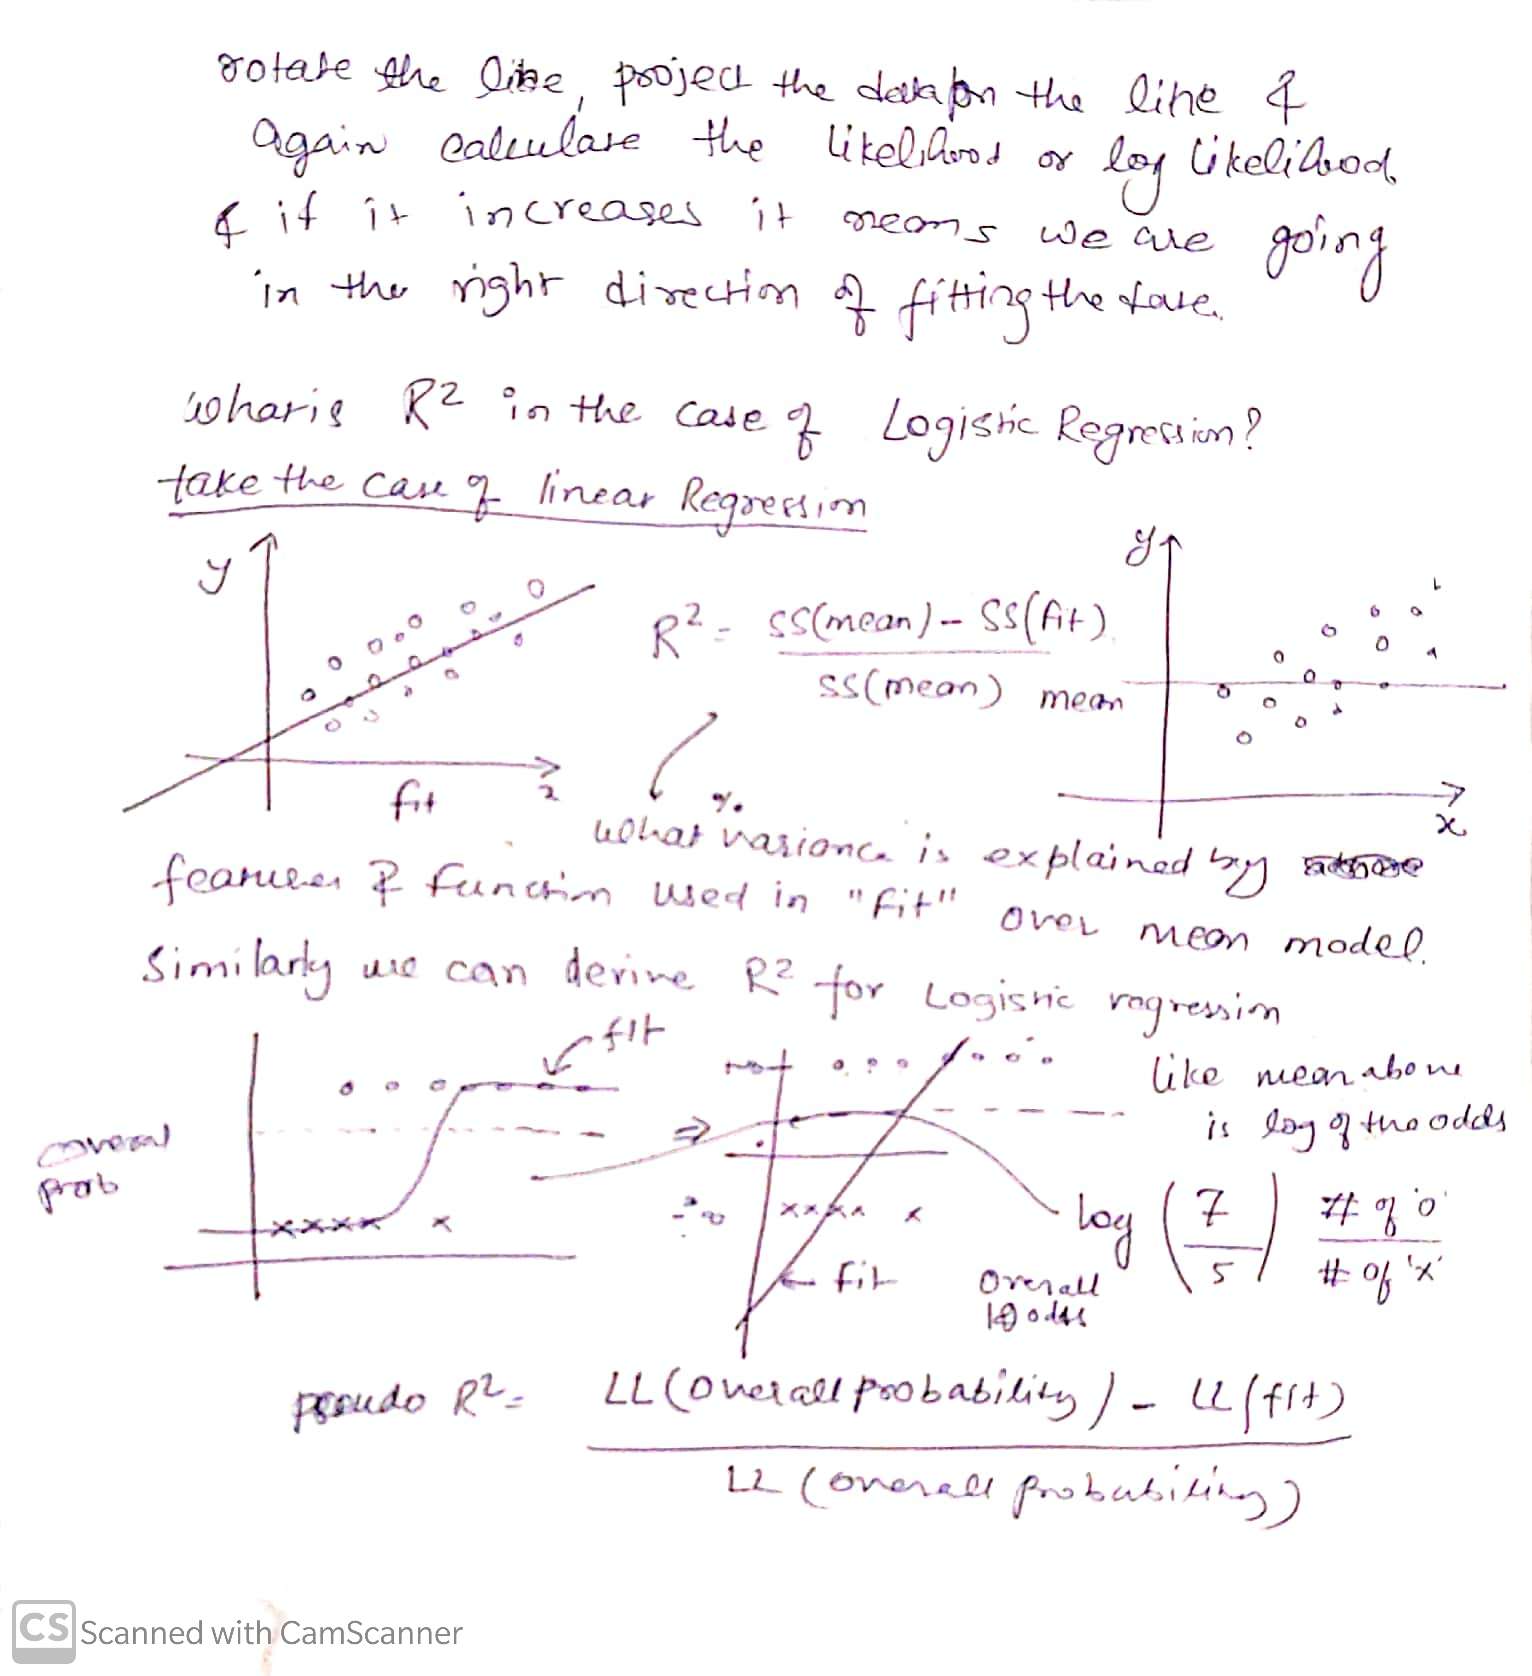 rotate the line, project the data on the line &
again calculate the likelihood or log likelihood.
& if it increases it means we are going
in the right direction of fitting the data.
what is R2 in the case of Logistic Regression?
take the case of linear Regression
y
y
R2 = SS(mean) - SS(fit)
SS(mean)
mean
fit
x
x
%
what variance is explained by
features & function used in "fit" over mean model.
Similarly we can derive R2 for Logistic regression
fit
like mean above
is log of the odds
overall
prob
xxxx x
xxxx x
log (7/5) # of 'o' / # of 'x'
fit
overall
odds
pseudo R2 = LL (overall probability) - LL (fit)
LL (overall probability)
CS Scanned with CamScanner